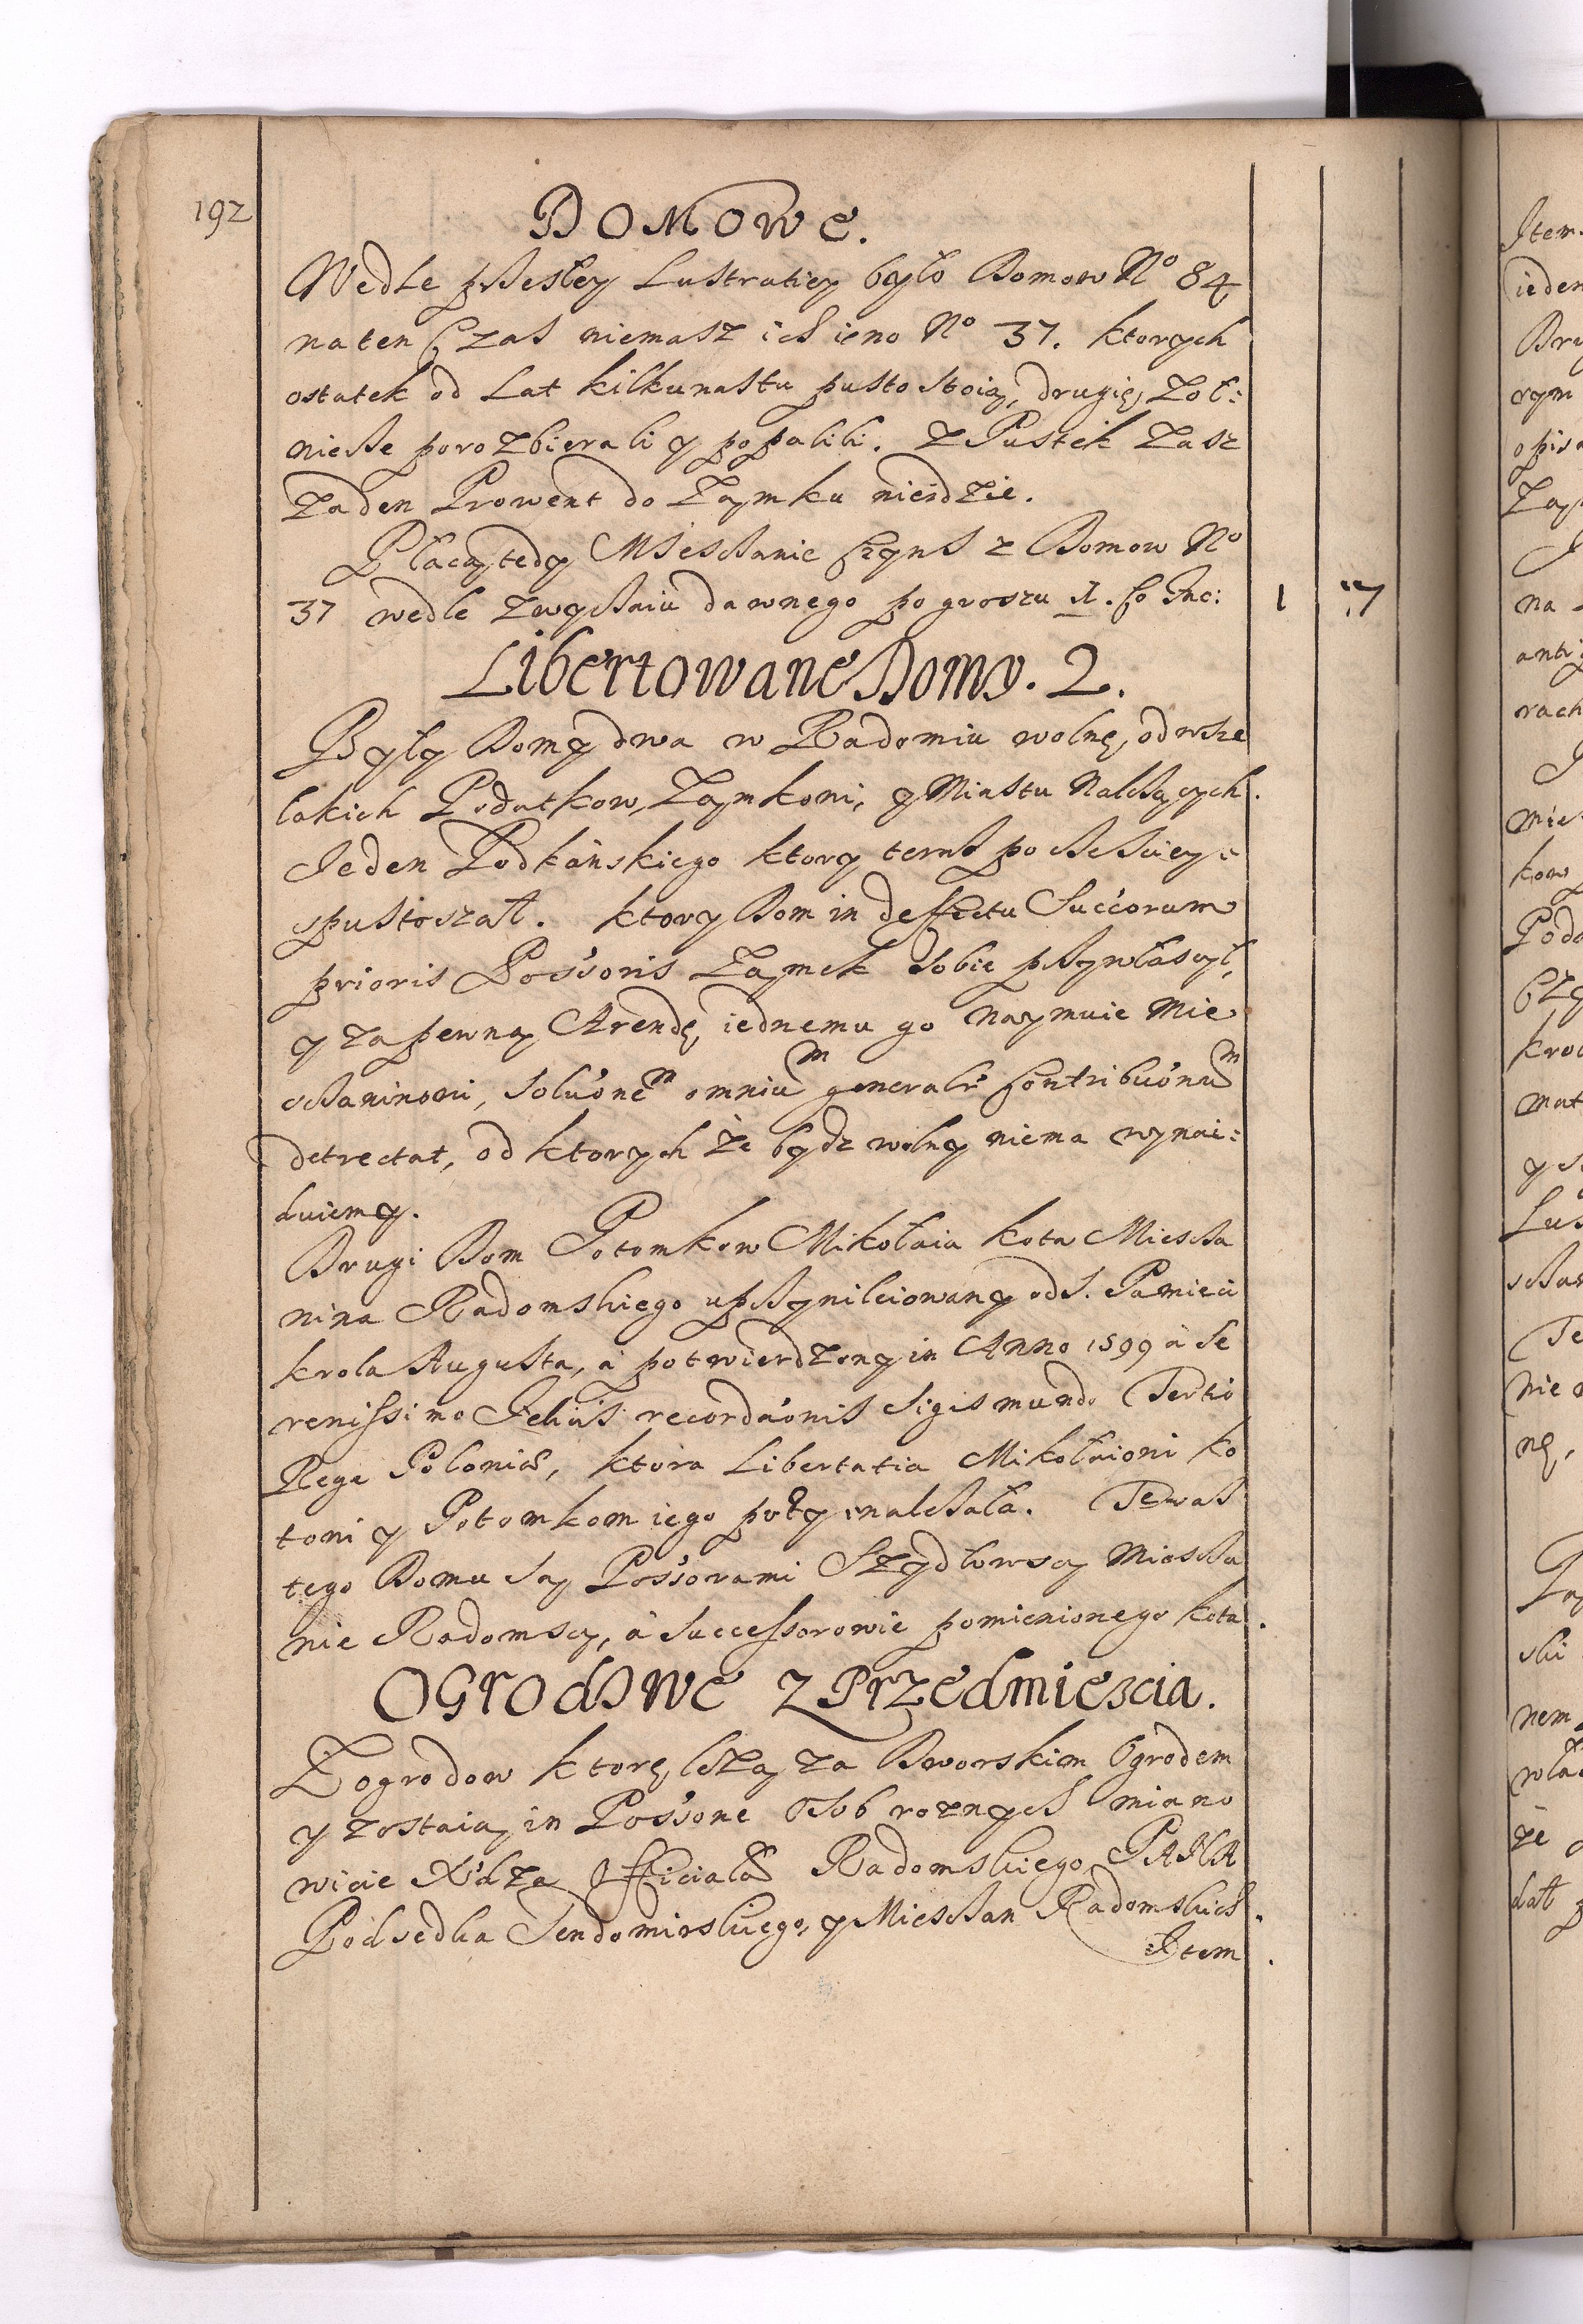 192
Domowe.
Wedle przeszłey Lustratiey było Domow No 84
na ten Czas niemasz ich ieno No 37. ktorych
ostatek od Lat kilkunastu pusto stoią, drugię Zoł:
nierze porozbierali y popalili. Z Pustek zasz
Zaden Prowent do Zamku nieidzie.
Płacą tedy Miesczanie Czynsz z Domow No
37 wedle zwyczaiu dawnego po groszu 1. Co Fac: 1 :7
Libertowane Domy. 2.
Były Domy dwa w Radomiu wolnę, od wsze
lakich Podatkow, Zamkowi, y Miastu Należących.
Jeden Podkańskiego ktory teraz po części
spustoszał. ktory Dom in deffectu Succorum
prioris Possoris Zamek sobie przywłasczył,
y za pewną Arendę, iednemu go naymuie Mie
sczaninowi, soluone͂ m omniu m generalr Contributionu m
detrectat, od ktorych że bydz wolny niema wynai:
duiemy.
Drugi Dom Potomkow Mikołaia Kota Miescza
nina Radomskiego uprzywileiowany od S. Pamieci
Krola Augusta, a potwierdzony in Anno 1599 a Se
renissimo Felicis recordaonis Sigismundo Tertio
Rege Poloniæ, ktora Libertatia Mikołaiowi Ko
towi y Potomkom iego należała. Teraz
tego Domu są Possorami Szydłowscy Miescza
nie Radomscy, a Successorowie pomienionego Kota.
Ogrodowe z Przedmiescia.
Z ogrodow ktorę leżą za Dworskim Ogrodem
y zostaią in Possone Osob roznych miano
wicie Xdza Officiała Radomskiego PANA
Podsedka Sendomirskiego, y Miesczan Radomskich.
Item